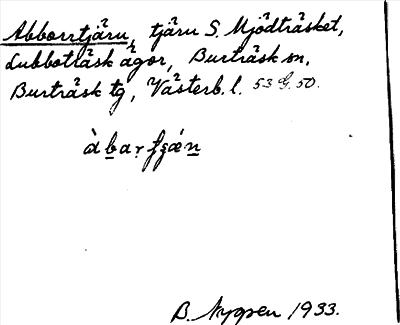 Abborrtjärn, tjärn S. Mjödträsket,
Lubboträsk ägor, Burträsk sn,
Burträsk tg, Västerb. l. 53 G. 50.
B. Nygren 1933.